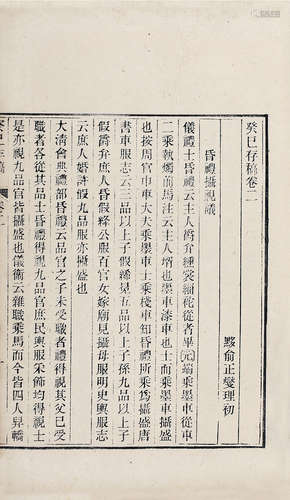 癸巳存稿卷二
黟俞正燮理初
昏禮攝視議
儀禮士昏禮云主人爵弁纁裳緇袘從者畢元端乘墨車從車
二乘執燭前馬注云主人壻也墨車漆車也士而乘墨車攝盛
也按周官巾車大夫乘墨車士乘棧車知昏禮所乘為攝盛唐
書車服志云三品以上子假絺冕五品以上子孫九品以上子
假爵弁庶人昏假絳公服百官女嫁廟見攝母服明史輿服志
云庶人婚許假九品服亦攝盛也
大清會典禮部昏禮云品官之子未受職者禮得視其父已受
職者各從其品士昏禮得視九品官庶民輿服采飾均得視士
是亦視九品官皆攝盛也儀衛云雜職乘馬而今皆四人舁轎